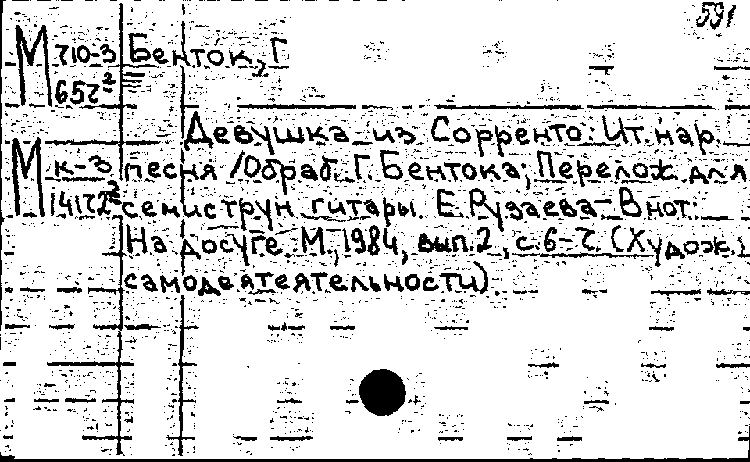 591
М 710-3 Бенток, Г
657²
Девушка из Сорренто: Ит. нар.
М к-3 песня /Обраб. Г. Бентока; Перелож. для
семиструн гитары Е. Рузаева- В нот:
На досуге. М., 1984, вып. 2, с. 6-7. (Худож.
самодеятеятельности).